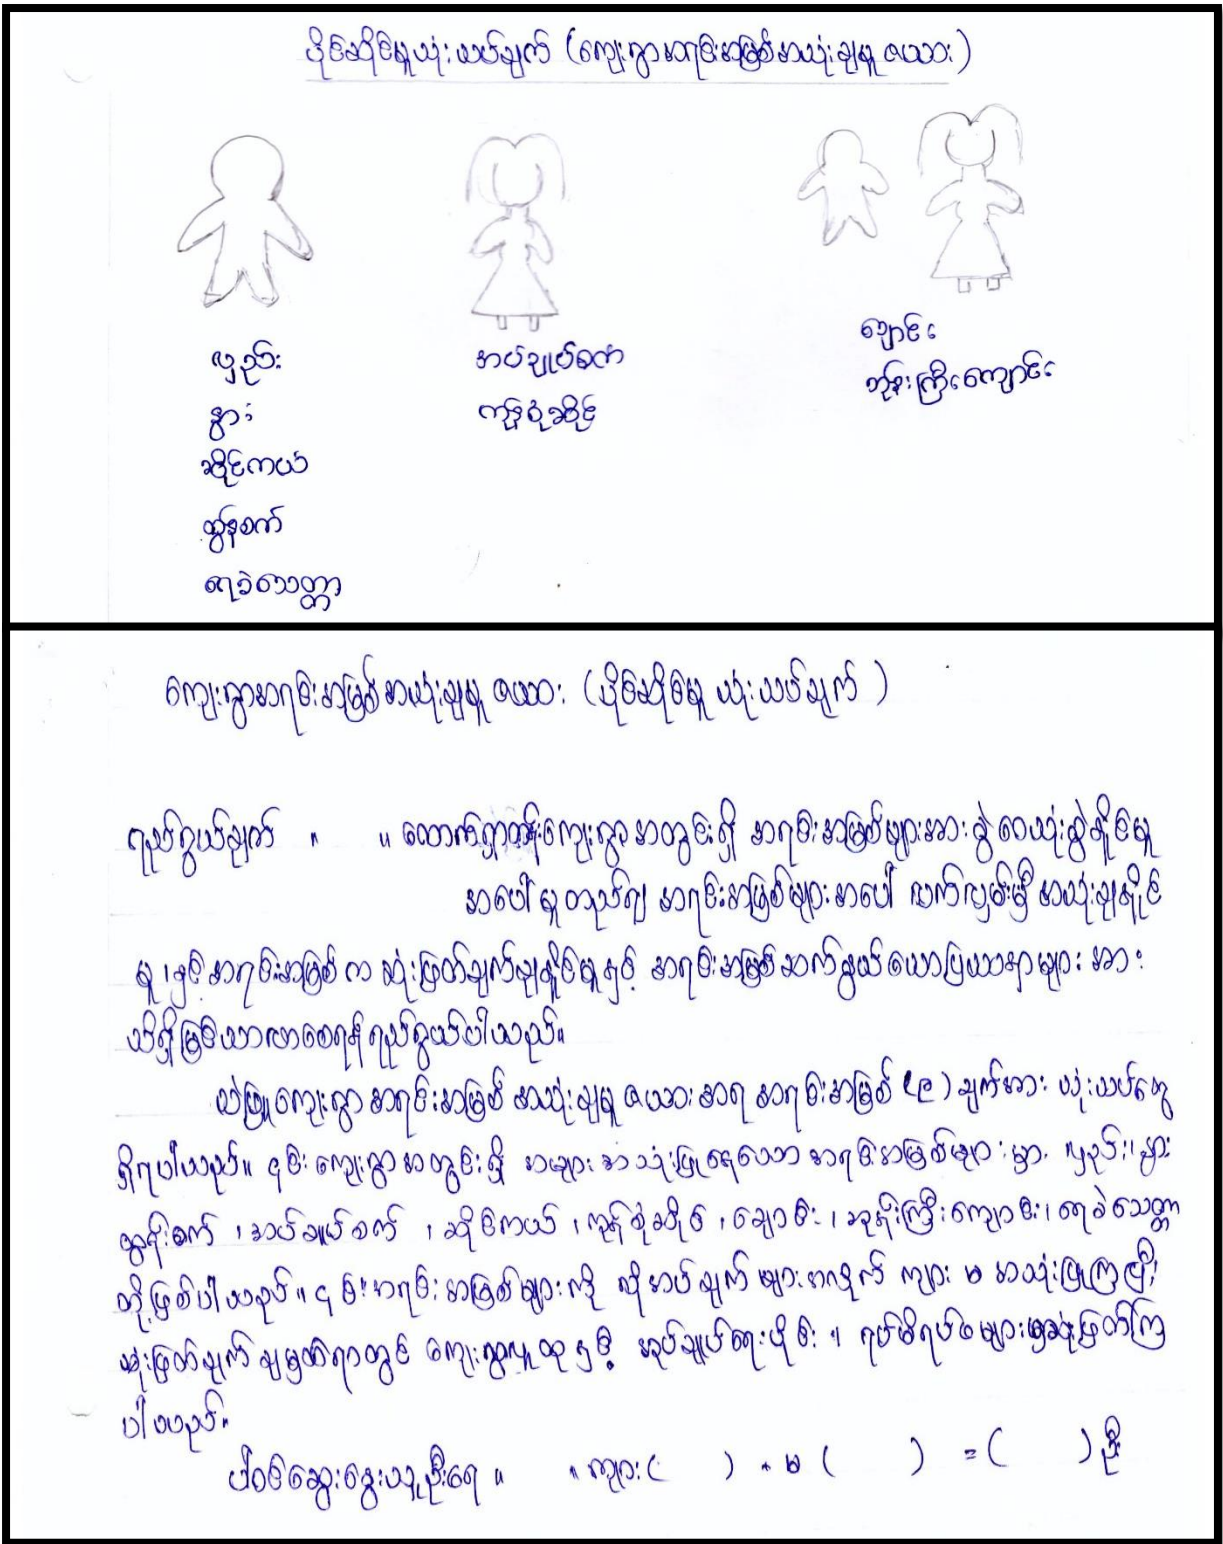 ပိုင်ဆိုင်မှုသုံးသပ်ချက် (ကျေးရွာအရင်းအမြစ်အသုံးချမှု ဇယား)
လှည်း
နွား
ဆိုင်ကယ်
ထွန်စက်
ရေခဲသေတ္တာ
အပ်ချုပ်စက်
ကုန်စုံဆိုင်
ချောင်း
ဘုန်းကြီးကျောင်း
ကျေးရွာအရင်းအမြစ်အသုံးချမှု ဇယား (ပိုင်ဆိုင်မှု သုံးသပ်ချက် )
ရည်ရွယ်ချက် ။ ။ ကျေးရွာ အတွင်းရှိ အရင်းအမြစ်များအား ခွဲဝေသုံးစွဲနိုင်မှု
အပေါ်မူတည်၍ အရင်းအမြစ်များအပေါ် လက်လှမ်းမှီ အသုံးချနိုင်
မှု ၊ ၎င်းအရင်းအမြစ်က ဆုံးဖြတ်ချက်ချနိုင်မှုနှင့် အရင်းအမြစ်ဆက်နွယ်သောပြဿနာများ အား
သိရှိမြင်သာလာစေရန်ရည်ရွယ်ပါသည်။
သဲဖြူကျေးရွာ အရင်းအမြစ် အသုံးချမှု ဇယားအရ အရင်းအမြစ် (၉) ချက်အား သုံးသပ်တွေ့
ရှိရပါသည်။ ၎င်းကျေးရွာအတွင်းရှိ အများအသုံးပြုနေသော အရင်းအမြစ်များမှာ လှည်း၊ နွား
ထွန်စက် ၊ အပ်ချုပ်စက် ၊ ဆိုင်ကယ် ၊ ကုန်စုံဆိုင် ၊ ချောင်း ၊ ဘုန်းကြီးကျောင်း ၊ ရေခဲသေတ္တာ
တို့ဖြစ်ပါသည်။ ၎င်းအရင်းအမြစ်များကို လိုအပ်ချက်များအလိုက် ကျား မ အသုံးပြုကြပြီး
ဆုံးဖြတ်ချက် ချမှတ်ရာတွင် ကျေးရွာလူထုနှင့် အုပ်ချုပ်ရေးပိုင်း ။ ရပ်မိရပ်ဖများမှဆုံးဖြတ်ကြ
ပါသည်။
ပါဝင်ဆွေးနွေးသူဦးရေ ။ ။ ကျား ( ) + မ ( ) = ( ) ဦး